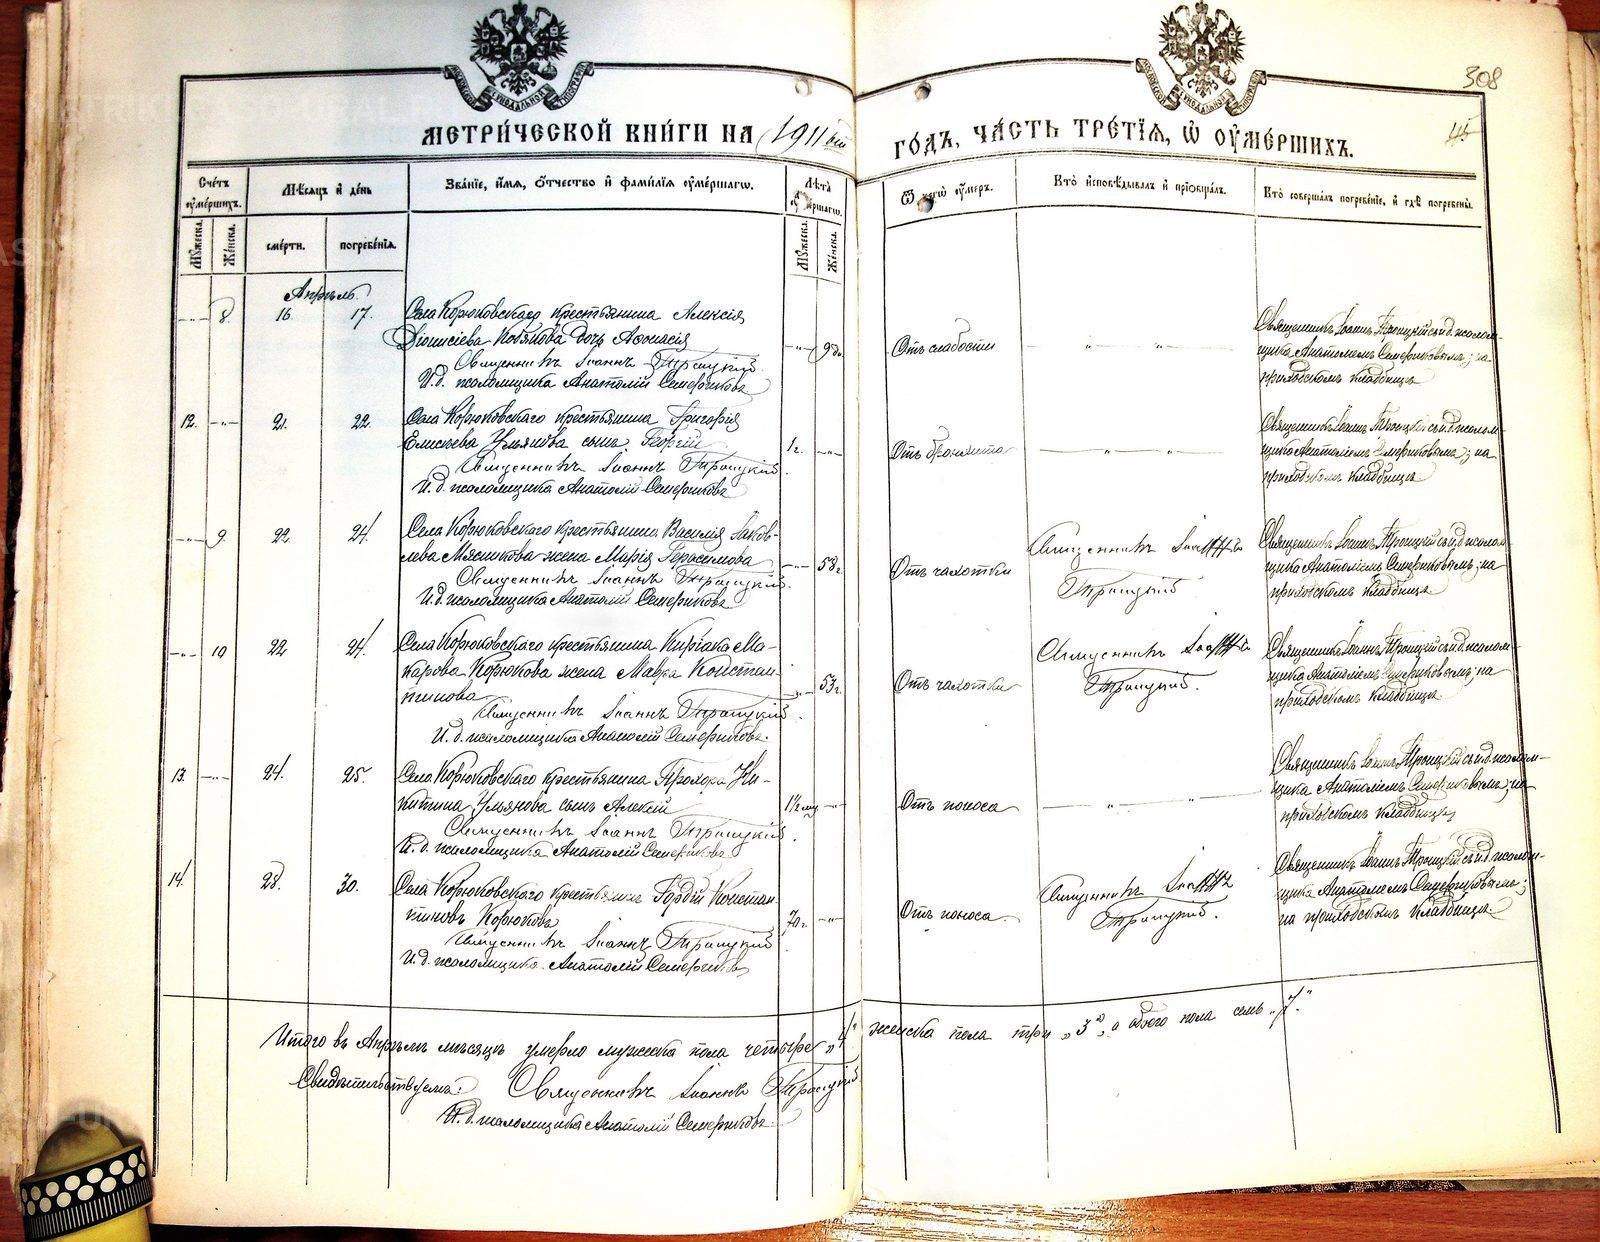 308
45
МЕТРИ́ЧЕСКОЙ КНИ́ГИ НА 1911ый ГОДЪ, ЧА́СТЬ ТРЕ́ТІѦ, Ѡ ОУМЕ́РШИХЪ.
Счетъ оумершихъ.
Мѣсяцъ и день
Званіе, имя, отчество и фамилія оумершаго.
Лѣта оумершаго.
Ѿ чегѡ оумеръ.
Кто исповѣдывалъ и пріобщалъ.
Кто совершалъ погребеніе, и гдѣ погребены.
Мужеска.
Женска.
смерти.
погребенія.
Мужеска.
Женска.
Апрѣль.
8. 16 17. Села Корюковскаго крестьянина Алексія
Діонисіева Котякова дочь Аѳанасія
9 дн. Отъ слабости
Священникъ Іоаннъ Троицкій.
И. д. псаломщика Анатолій Семериковъ
Священникъ Іоаннъ Троицкій съ и. д. псалом-
щика Анатоліемъ Семериковымъ; на
приходскомъ кладбищѣ
12. 21. 22 Села Корюковскаго крестьянина Григорія
Елисѣева Ульянова сынъ Георгій
1 г. Отъ бронхита
Священникъ Іоаннъ Троицкій
И. д. псаломщика Анатолій Семериковъ
Священникъ Іоаннъ Троицкій съ и. д. псалом-
щика Анатоліемъ Семериковымъ; на
приходскомъ кладбищѣ
9. 22. 24. Села Корюковскаго крестьянина Василія Іаков-
лева Мясникова жена Марія Герасимова
58 г. Отъ чахотки
Священникъ Іоаннъ Троицкій.
И. д. псаломщика Анатолій Семериковъ
Священникъ Іоаннъ
Троицкій
Священникъ Іоаннъ Троицкій съ и. д. псалом-
щика Анатоліемъ Семериковымъ; на
приходскомъ кладбищѣ.
10 22 24. Села Корюковскаго крестьянина Киріака Ма-
карова Корюкова жена Мавра Констан-
тинова
53 г. Отъ чахотки
Священникъ Іоаннъ Троицкій.
И. д. псаломщика Анатолій Семериковъ.
Священникъ Іоаннъ
Троицкій.
Священникъ Іоаннъ Троицкій съ и. д. псалом-
щика Анатоліемъ Семериковымъ; на
приходскомъ кладбищѣ.
13. 24. 25. Села Корюковскаго крестьянина Прохора Ни-
китина Ульянова сынъ Алексій
Отъ поноса
Священникъ Іоаннъ Троицкій.
И. д. псаломщика Анатолій Семериковъ
Священникъ Іоаннъ Троицкій съ и. д. псалом-
щика Анатоліемъ Семериковымъ; на
приходскомъ кладбищѣ
14. 28. 30. Села Корюковскаго крестьянинъ Гордій Констан-
тиновъ Корюковъ
70 г. Отъ поноса.
Священникъ Іоаннъ Троицкій
И. д. псаломщика Анатолій Семериковъ
Священникъ Іоаннъ
Троицкій.
Священникъ Іоаннъ Троицкій съ и. д. псалом-
щика Анатоліемъ Семериковымъ;
на приходскомъ кладбищѣ.
Итого въ Апрѣлѣ мѣсяцѣ умерло мужска пола четыре „4“ женска пола три „3“, а обоего пола семь „7“.
Свидѣтельствуемъ: Священникъ Іоаннъ Троицкій
И. д. псаломщика Анатолій Семериковъ.